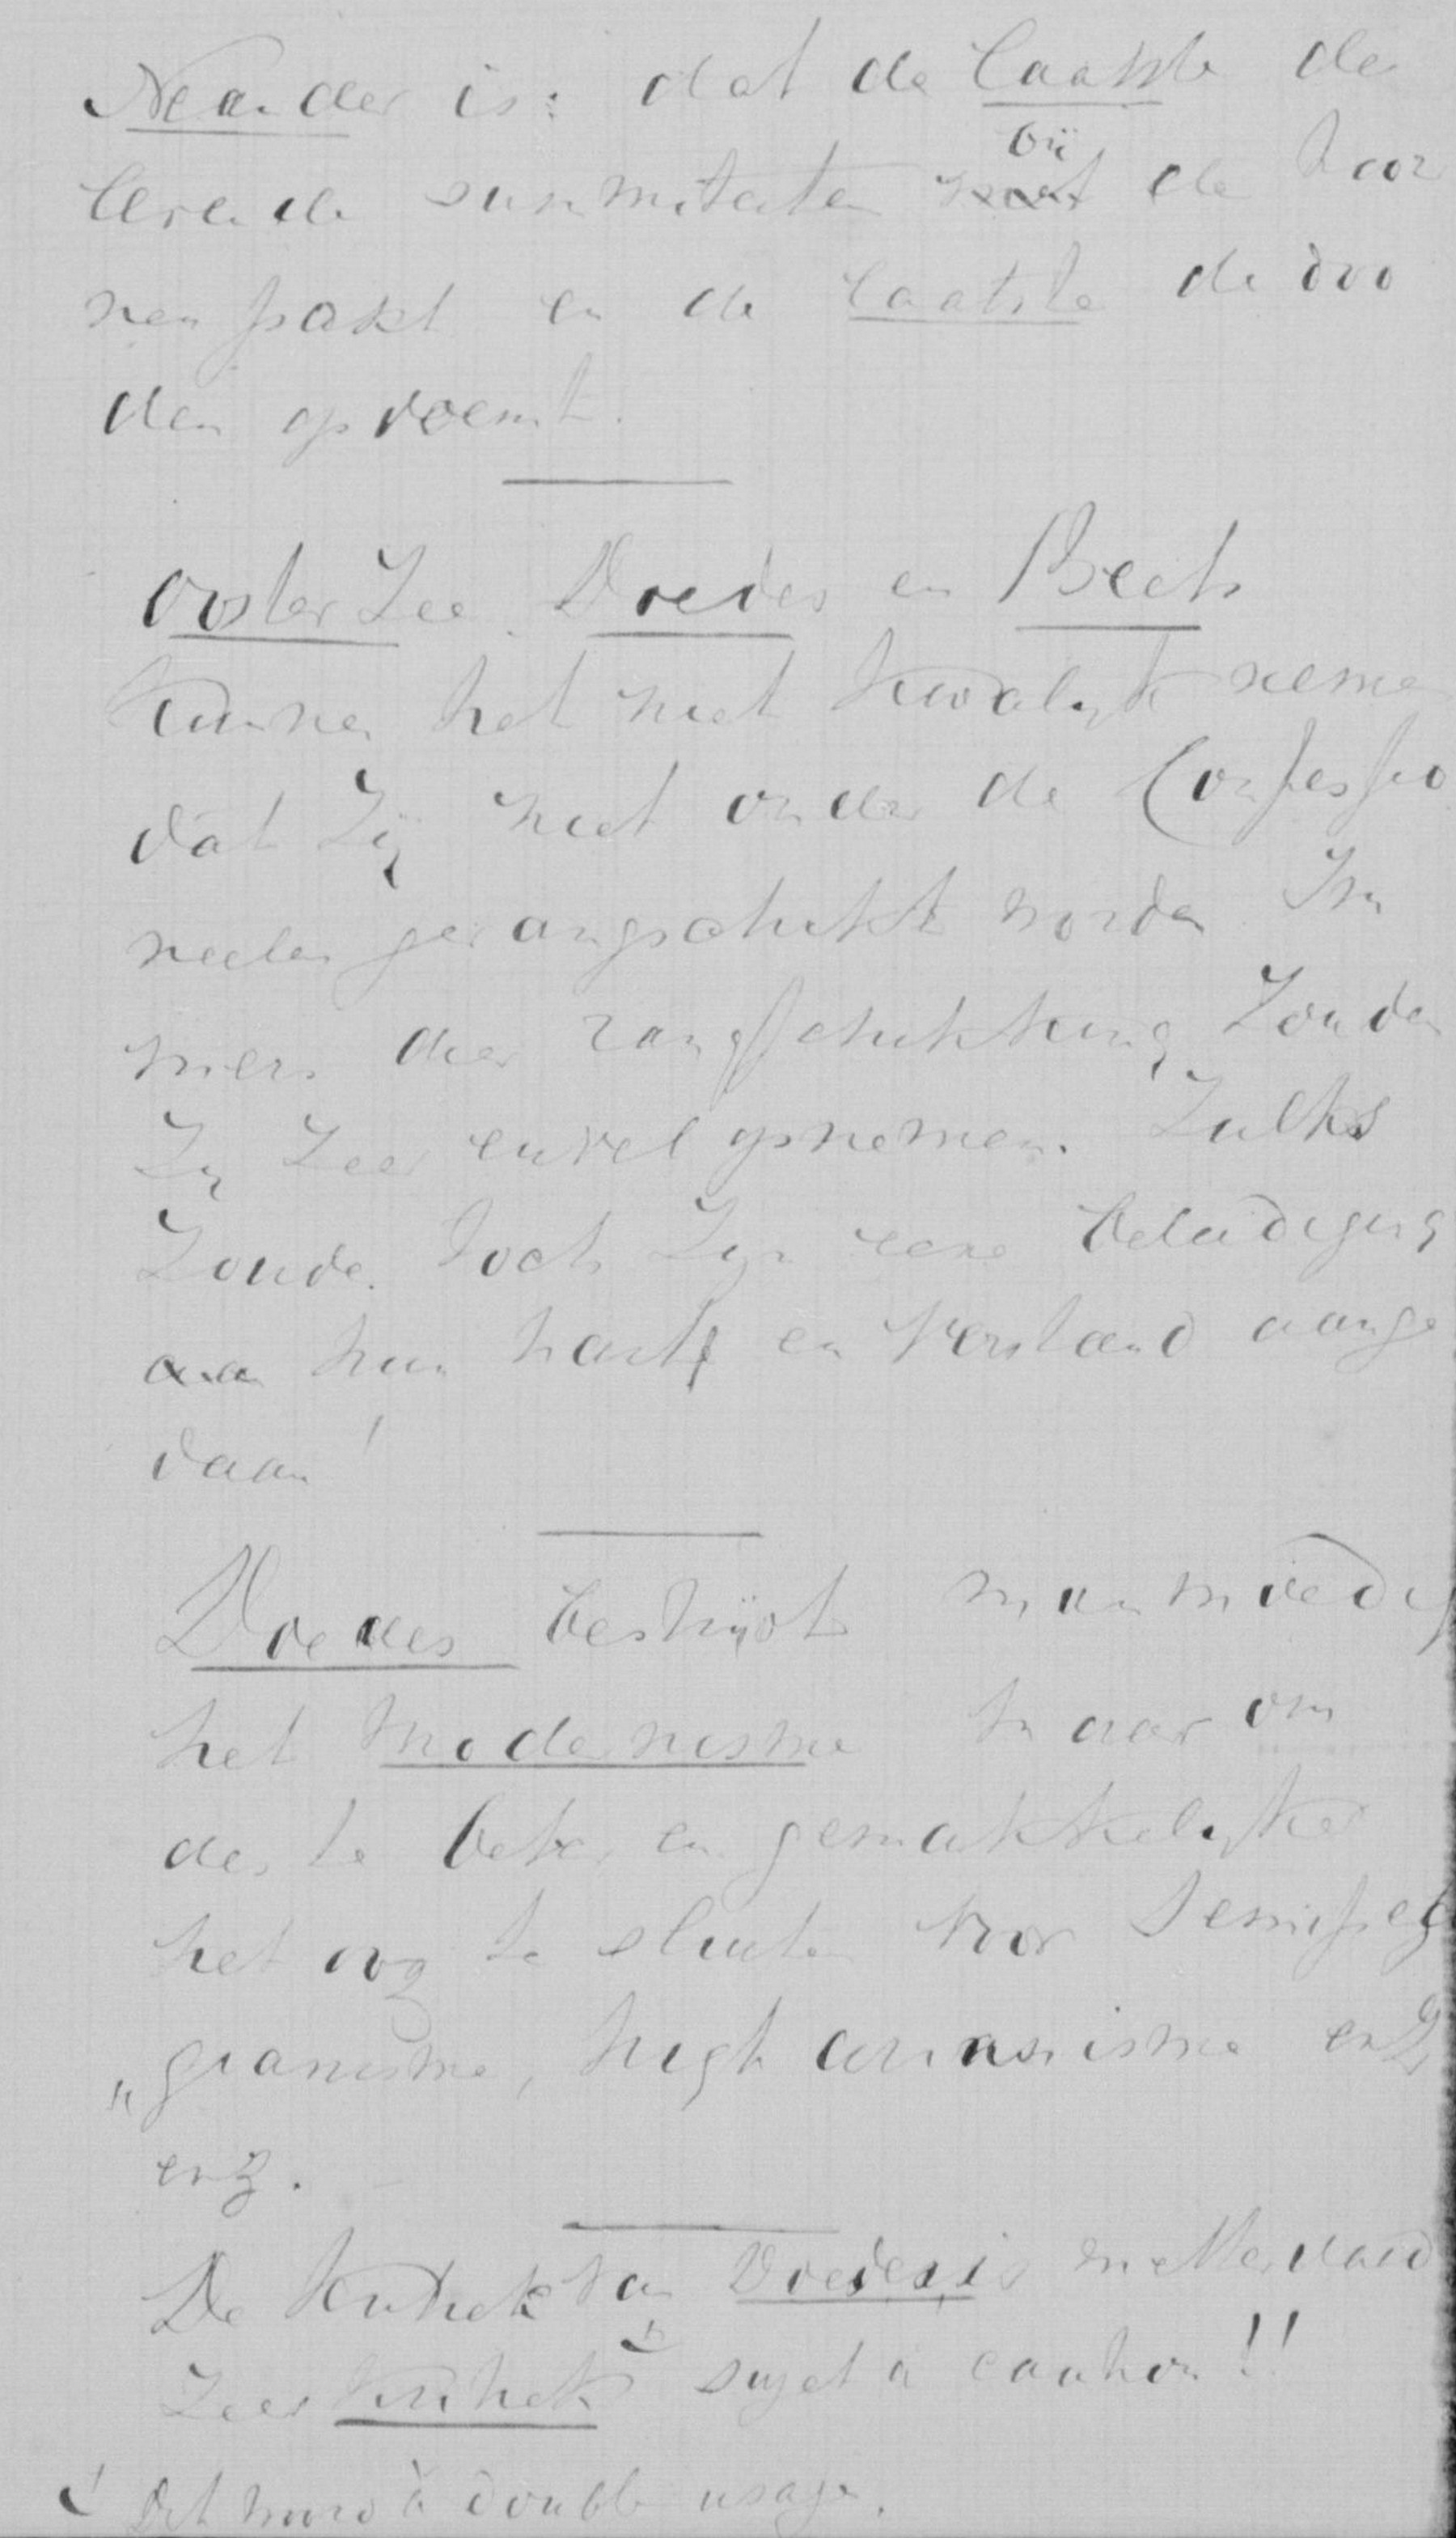 Neander is: dat de laatste de
levende summiteiten bij de hoor
nen pakt en de laatste de doo
den oproemt.
Oosterzee. Doedes en Beets
kunnen het niet kwalijk nemen
dat zij niet onder de Confessio
neelen gerangschikt worden Im
mers die rangschikking zouden
zij zeer euvel opnemen. Zulks
zoude toch zijn eene beleediging
aan hun hart en verstand aange
daan!
Doedes bestrijdt manmoedig
het modernisme maar om
des te beter en gemakkelijker
het oog te sluiten voor Semipela
„gianisme, high arianisme enz,
enz.
De kritiek van Doedes is metterdaad
zeer kritiek sujet à caution!!
Dit woord à double usage.